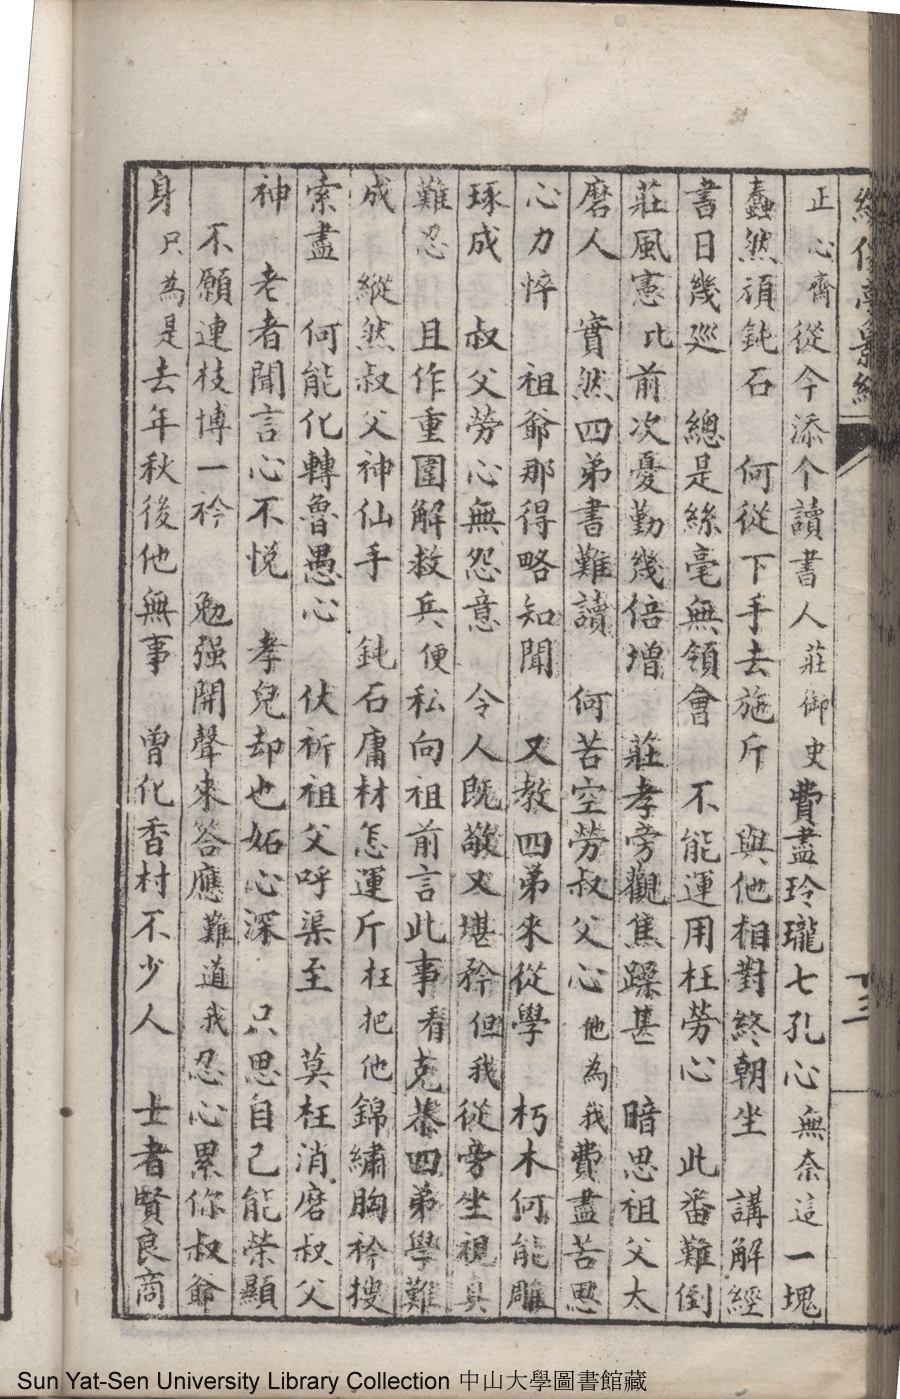 正心齊從今添个讀書人莊御史費盡玲瓏七孔心無奈這一塊
蠢然頑鈍石　何從下手去施斤　與他相對終朝坐　講解經
書日幾巡　總是絲毫無領會　不能運用枉勞心　此番難倒
莊風憲比前次憂勤幾倍增　莊孝旁觀焦躁甚　暗思祖父太
磨人　實然四弟書難讀　何苦空勞叔父心他為我費盡苦思
心力悴　祖爺那得略知聞　又教四弟來從學　朽木何能雕
琢成　叔父勞心無怨意　令人既敬又堪矜但我從旁坐視真
難忍　且作重圍解救兵便私向祖前言此事看克恭四弟學難
成　縱然叔父神仙手　鈍石庸材怎運斤枉把他錦繡胸衿搜
索盡　何能化轉魯愚心　伏祈祖父呼渠至　莫枉消磨叔父
神　老者聞言心不悅　孝兒却也妬心深　只思自己能榮顯
不願連枝博一衿　勉强開聲來答應難道我忍心累你叔爺
身只為是去年秋後他無事　曾化香村不少人　士者賢良商
十三
Sun Yat-Sen University Library Collection 中山大學圖書館藏